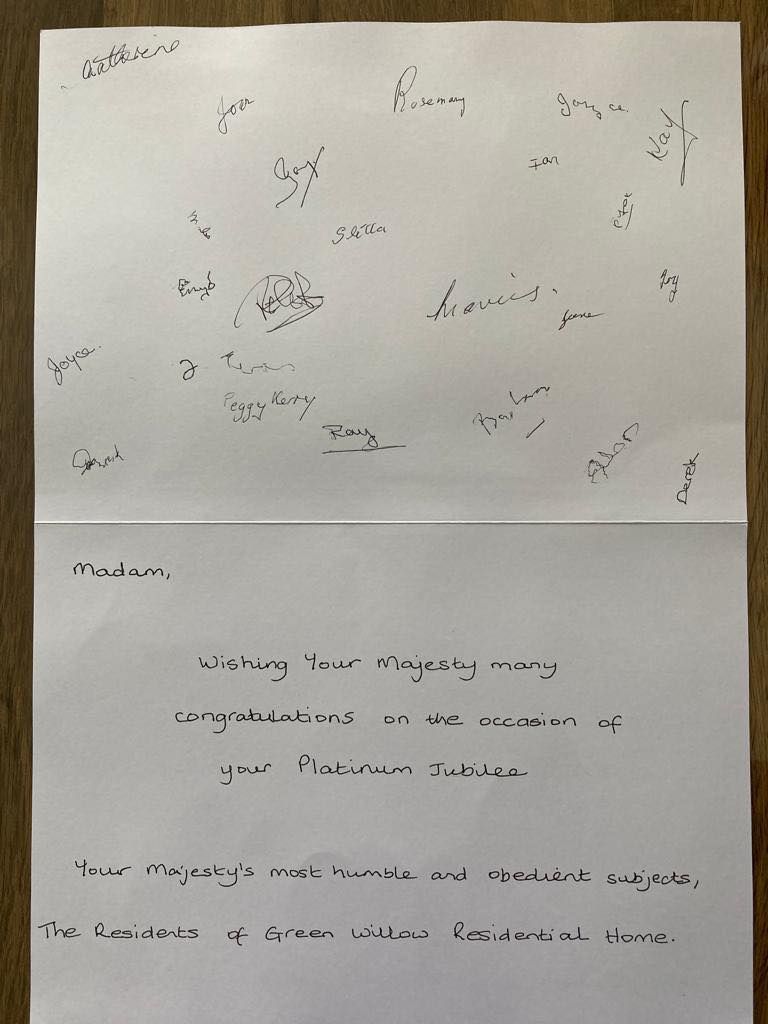 Catherine
Joan
Rosemary
Joyce
Kay
Ian
Stella
Enyd
Mavis.
June
Roy
Joyce.
Peggy Kerry
Ray
Derek
Madam,
Wishing Your Majesty many
congratulations on the occasion of
your Platinum Jubilee
Your Majesty's most humble and obedient subjects,
The Residents of Green Willow Residential Home.